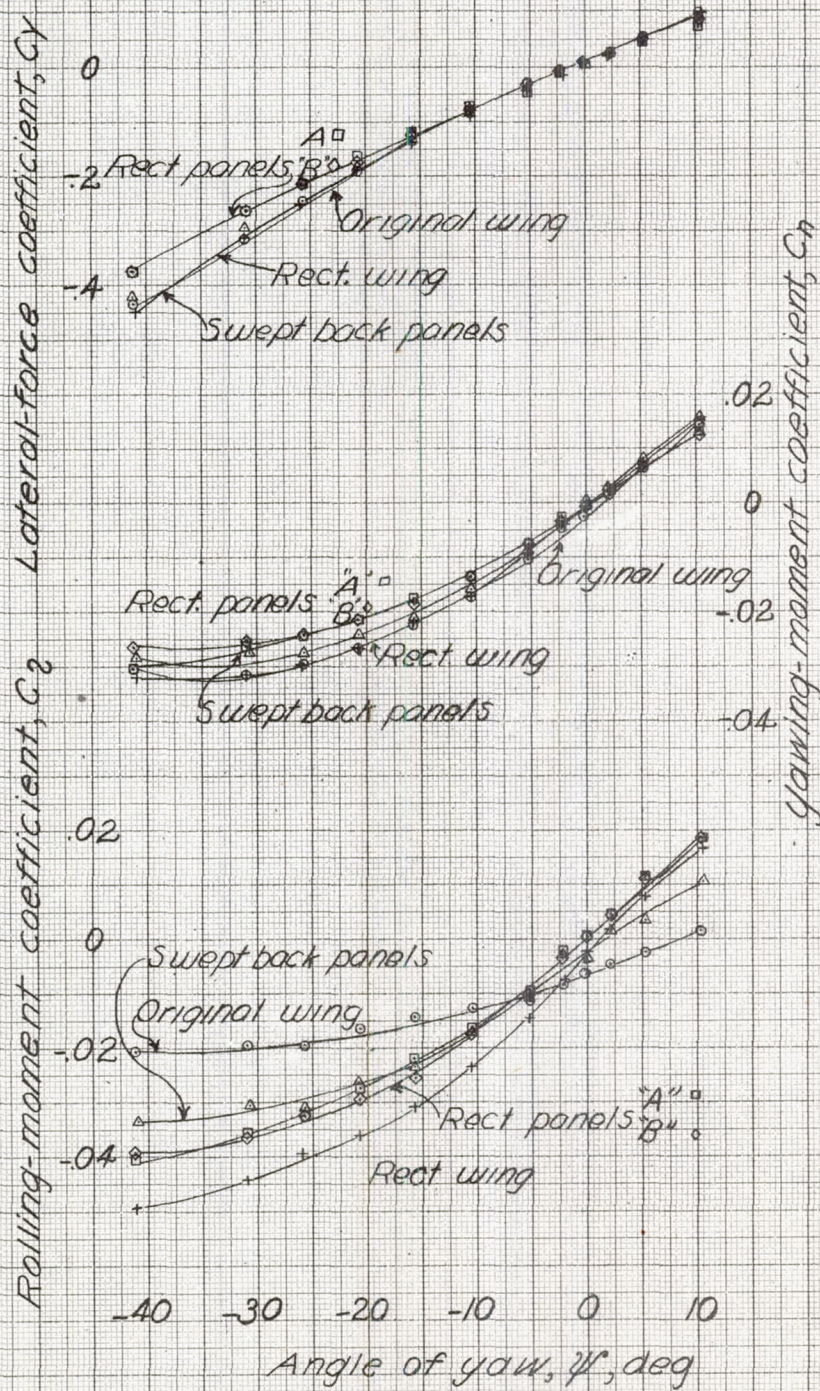 Lateral-force coefficient, Cy
0
-.2
-.4
A
Rect panels, "B"
Original wing
Rect. wing
Swept back panels
yawing-moment coefficient, Cn
.02
0
-.02
-.04
"A"
Rect. panels "B"
Original wing
Rect. wing
Swept back panels
Rolling-moment coefficient, C2
.02
0
-.02
-.04
Swept back panels
Original wing
"A"
Rect panels "B"
Rect wing
-40 -30 -20 -10 0 10
Angle of yaw, ψ, deg